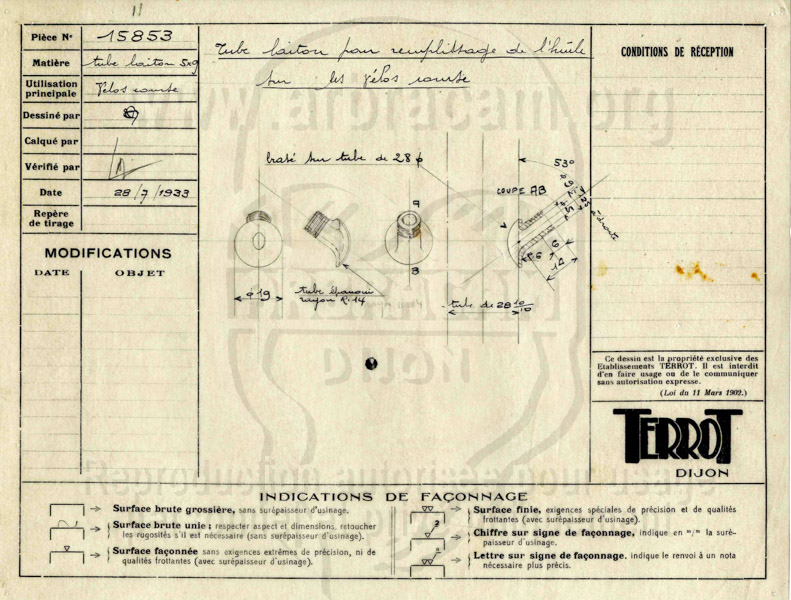 Pièce N° 15853
Matière tube laiton 5x9
Utilisation principale Vélos course
Dessiné par
Calqué par
Vérifié par
Date 28/7/1933
Repère de tirage
MODIFICATIONS
DATE OBJET
Tube laiton pour remplissage de l'huile
sur les Vélos course
CONDITIONS DE RÉCEPTION
brasé sur tube de 28 ϕ
53°
COUPE AB
A
B
ϕ 19
tube épanoui
rayon R. 14
tube de 28 10/10
6
14
Ce dessin est la propriété exclusive des
Etablissements TERROT. Il est interdit
d'en faire usage ou de le communiquer
sans autorisation expresse.
(Loi du 11 Mars 1902.)
TERROT
DIJON
www.arbracam.org
DIJON
Reproduction autorisée pour usage
INDICATIONS DE FAÇONNAGE
Surface brute grossière, sans surépaisseur d'usinage.
Surface brute unie : respecter aspect et dimensions, retoucher
les rugosités s'il est nécessaire (sans surépaisseur d'usinage).
Surface façonnée sans exigences extrêmes de précision, ni de
qualités frottantes (avec surépaisseur d'usinage).
Surface finie, exigences spéciales de précision et de qualités
frottantes (avec surépaisseur d'usinage).
Chiffre sur signe de façonnage, indique en m/m la suré-
paisseur d'usinage.
Lettre sur signe de façonnage, indique le renvoi à un nota
nécessaire plus précis.